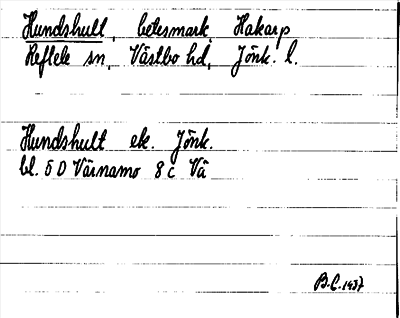 Hundshult, betesmark, Hakarp
Reftele sn, Västbo hd, Jönk. l.
Hundshult ek. Jönk.
bl. 5 D Värnamo 8 c Vä
B.L. 1937